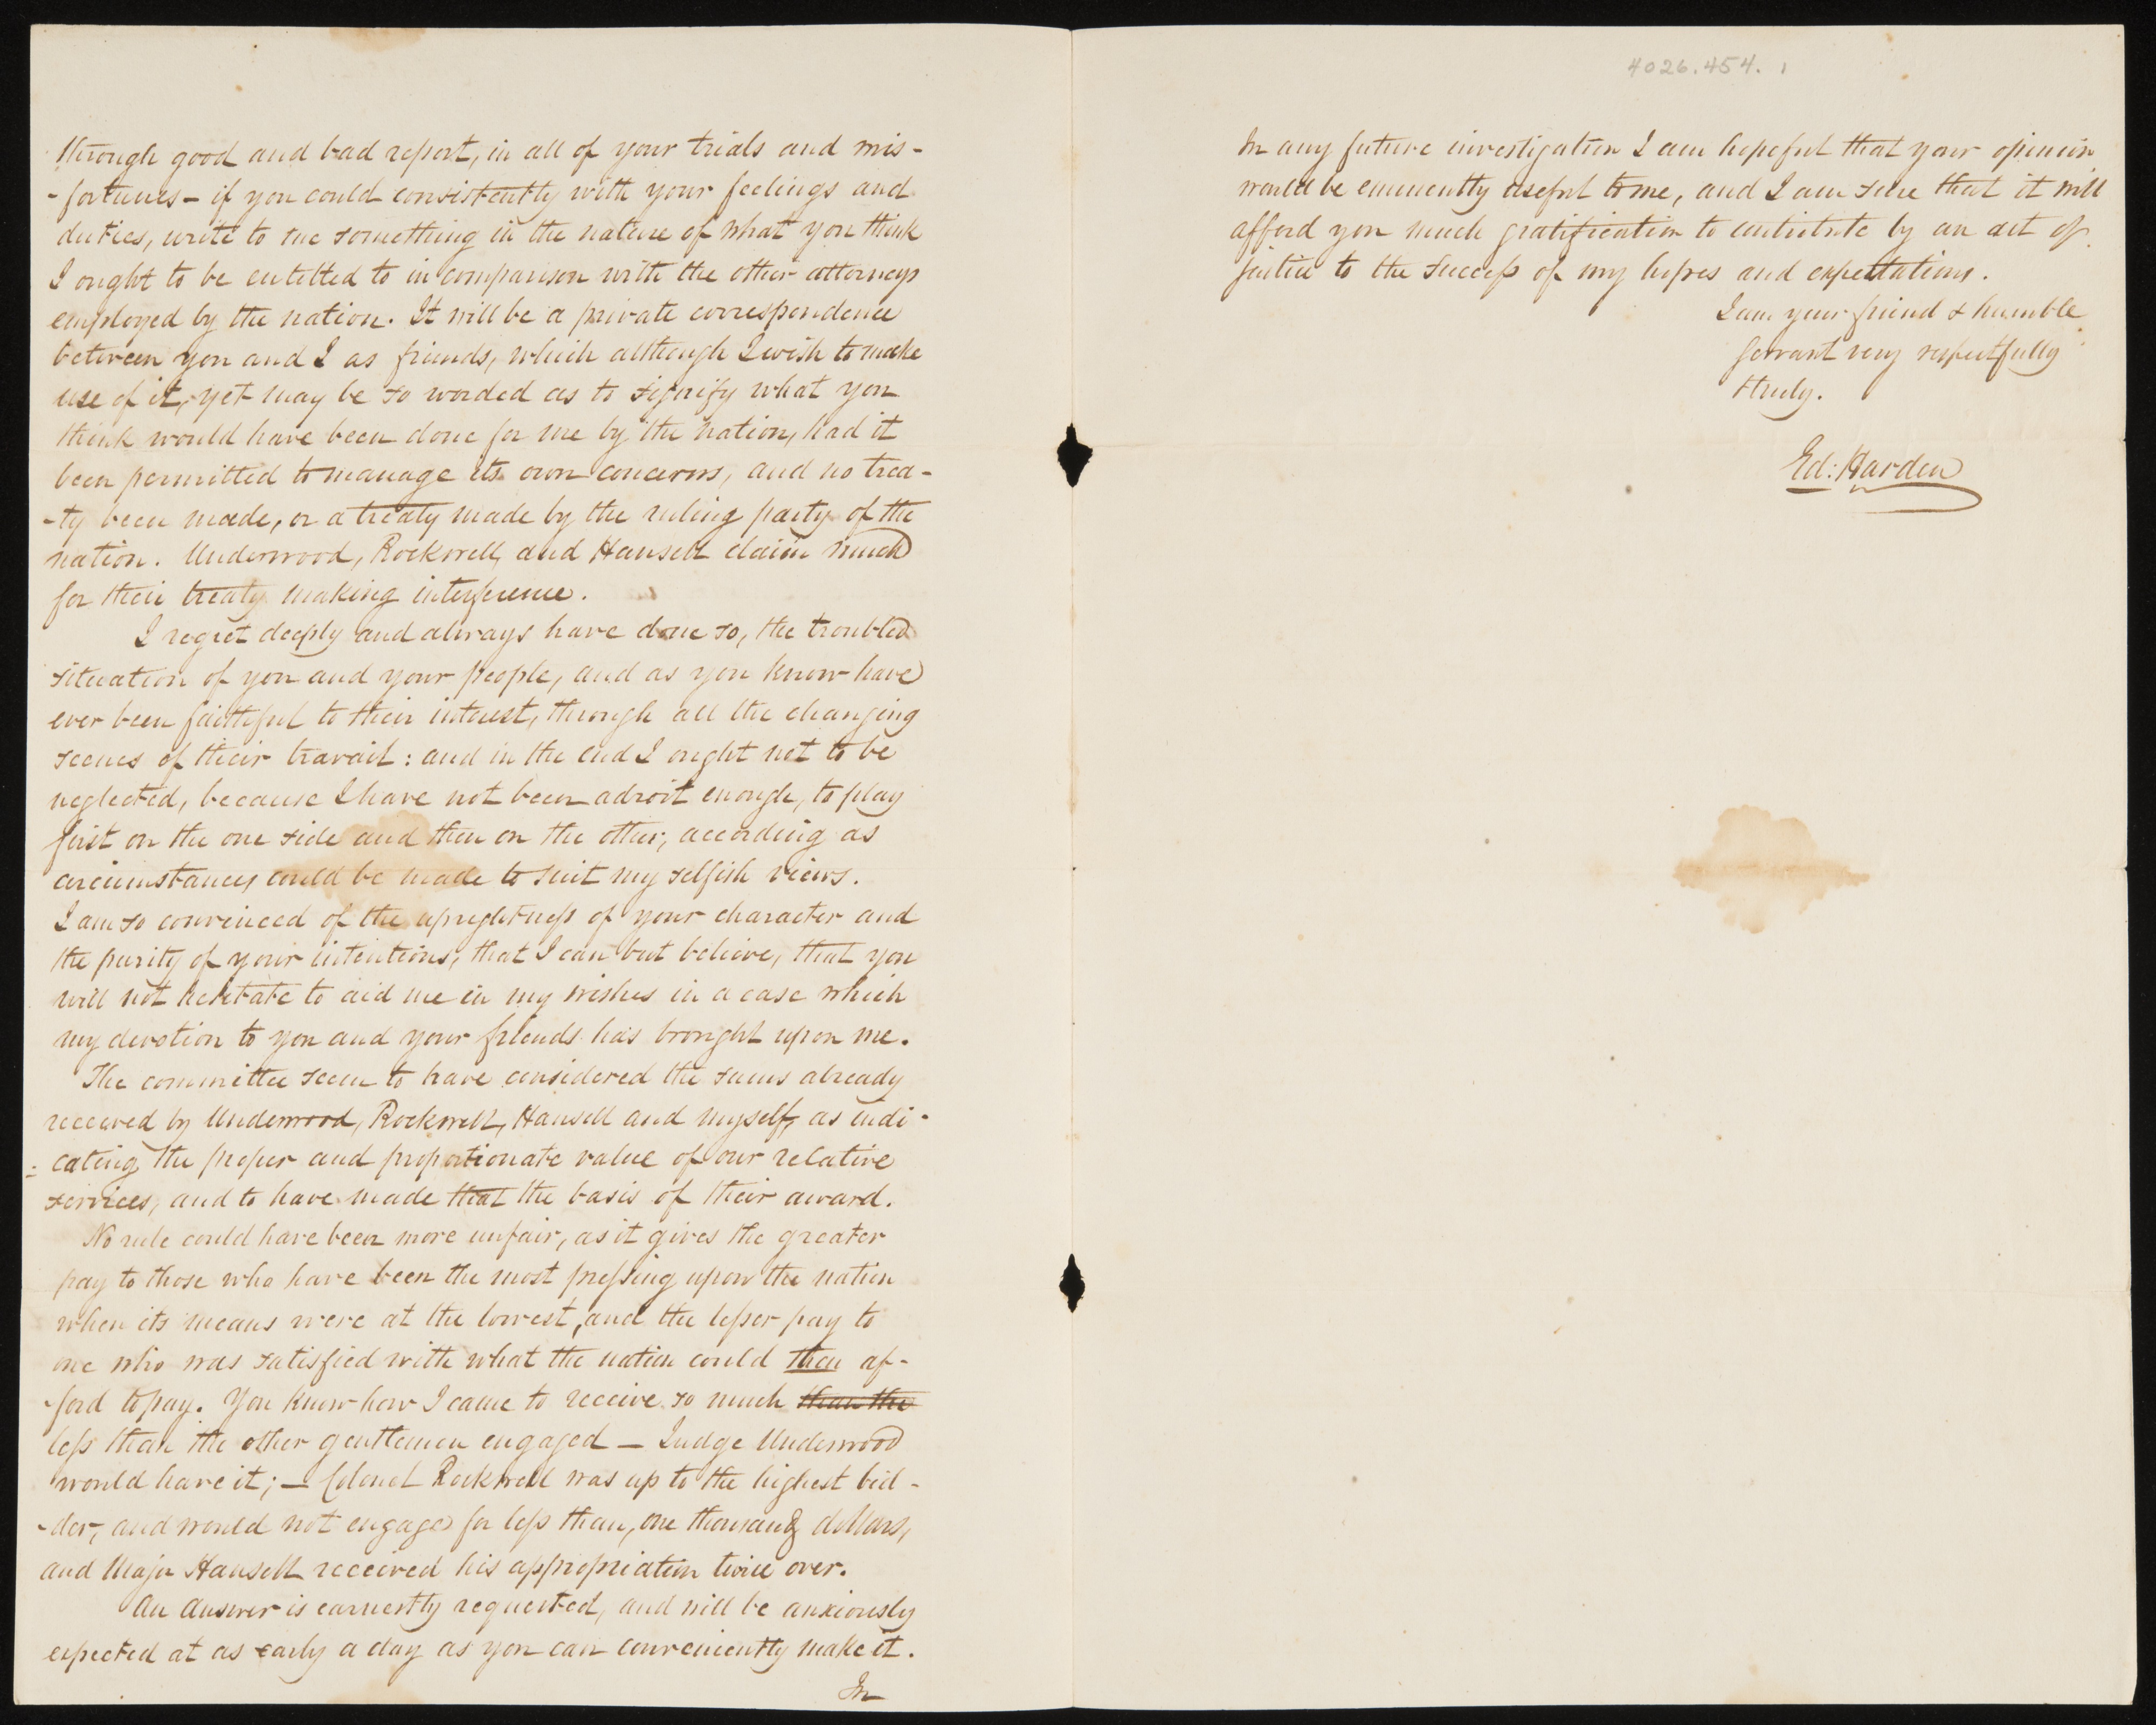 through good and bad report, in all of your trials and mis-
-fortunes - if you could consistently with your feelings and
duties, write to me something in the nature of what you think
I ought to be entitled to in comparison with the other attorneys
employed by the nation. It will be a private correspondence
between you and I as friends, which although I wish to make
use of it, yet may be so worded as to signify what you
think would have been done for me by the nation, had it
been permitted to manage its own concerns, and no trea-
-ty been made, or a treaty made by the ruling party of the
nation. Underwood, Rockwell, and Hansell claim much
for their treaty making interference.
I regret deeply and always have done so, the troubled
situation of you and your people, and as you know have
ever been faithful to their interest, through all the changing
scenes of their travail: and in the end I ought not to be
neglected, because I have not been adroit enough, to play
first on the one side and then on the other, according as
circumstances could be made to suit my selfish views.
I am so convinced of the uprightness of your character and
the purity of your intentions, that I can but believe, that you
will not hesitate to aid me in my wishes in a case which
my devotion to you and your friends has brought upon me.
The committee seem to have considered the sums already
received by Underwood, Rockwell, Hansell and myself, as indi-
-cating the proper and proportionate value of our relative
services, and to have made that the basis of their award.
No rule could have been more unfair, as it gives the greater
pay to those who have been the most pressing upon the nation
when its means were at the lowest, and the lesser pay to
one who was satisfied with what the nation could then af-
-ford to pay. You know how I came to receive so much than the
less than the other gentlemen engaged — Judge Underwood
would have it; — Colonel Rockwell was up to the highest bid-
-der, and would not engage for less than, one thousand dollars,
and Major Hansell received his appropriation twice over.
An answer is earnestly requested, and will be anxiously
expected at as early a day as you can conveniently make it.
In
4026.454.1
In any future investigation I am hopeful that your opinion
would be eminently useful to me, and I am sure that it will
afford you much gratification to contribute by an act of
justice to the success of my hopes and expectations.
I am your friend & humble
servant very respectfully
& truly.
Ed: Harden